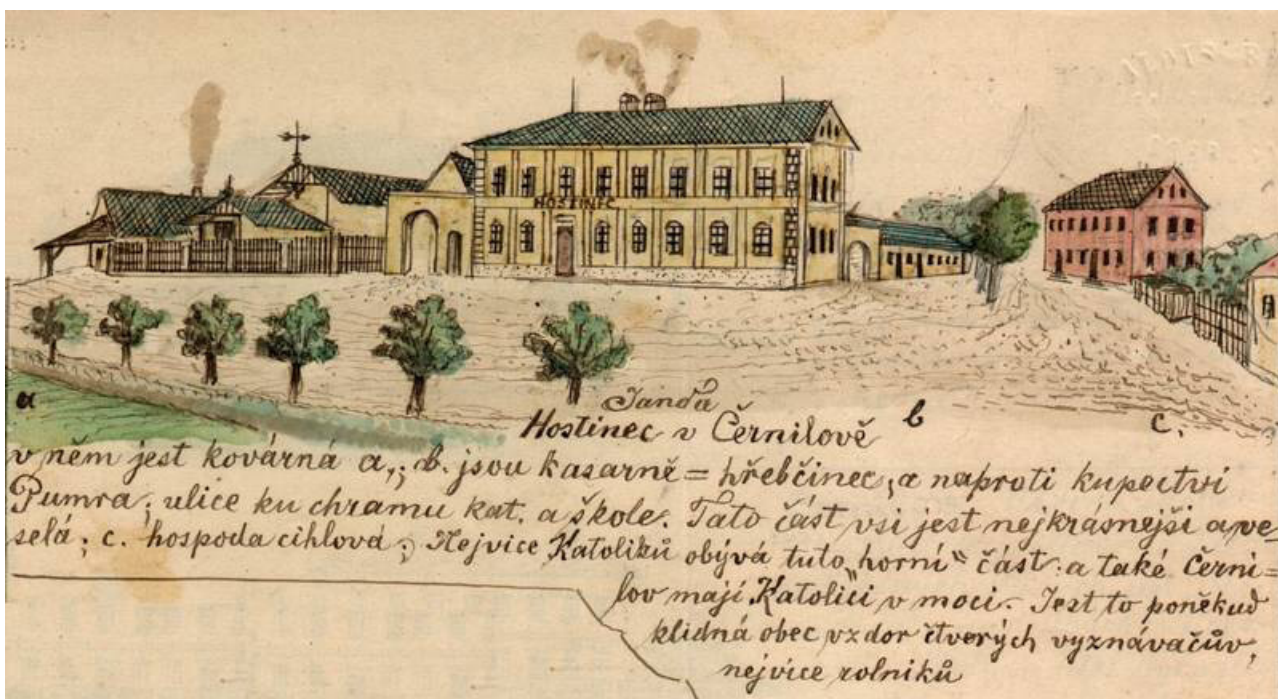 HOSTINEC
Janda
Hostinec v Černilově
a
b
c.
v něm jest kovárná a,; b. jsou kasarně = hřebčinec, a naproti kupectvi
Pumra; ulice ku chramu kat. a škole. Tato část vsi jest nejkrásnejši a ve=
selá; c. hospoda cihlová; Nejvice Katoliků obývá tuto „horní“ část a také Černi=
lov mají Katolici v moci. Jest to poněkud
klidná obec vzdor čtverých vyznávačův,
nejvice rolniků